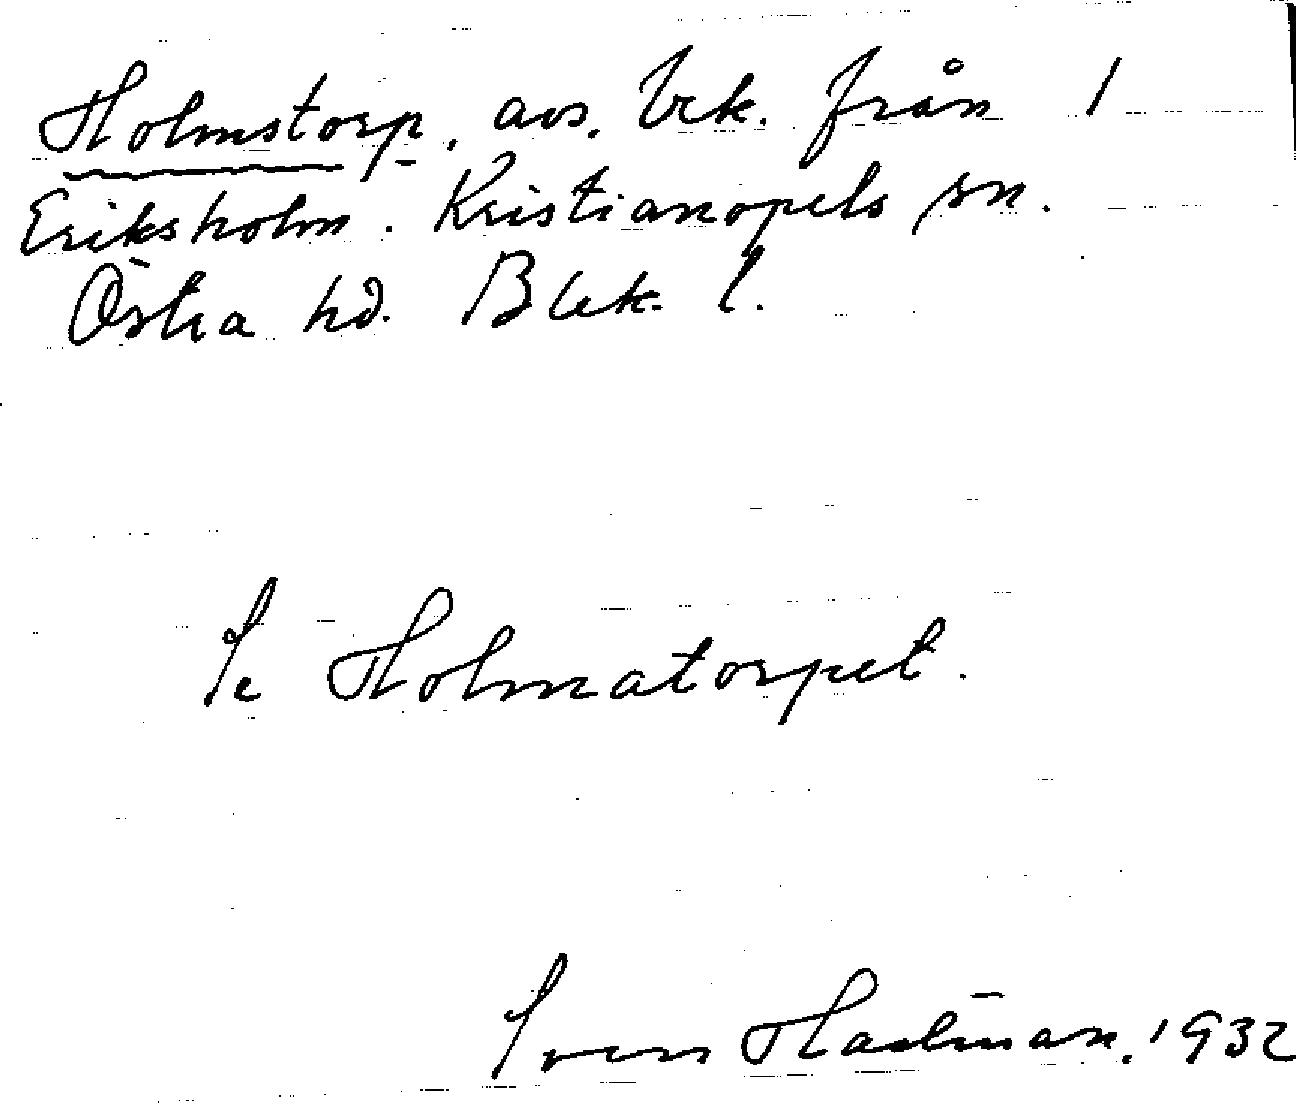 Holmstorp, avs. brk. från 1
Eriksholm. Kristianopels sn.
Östra hd. Blek. l.
Se Holmatorpet.
Sven 1932